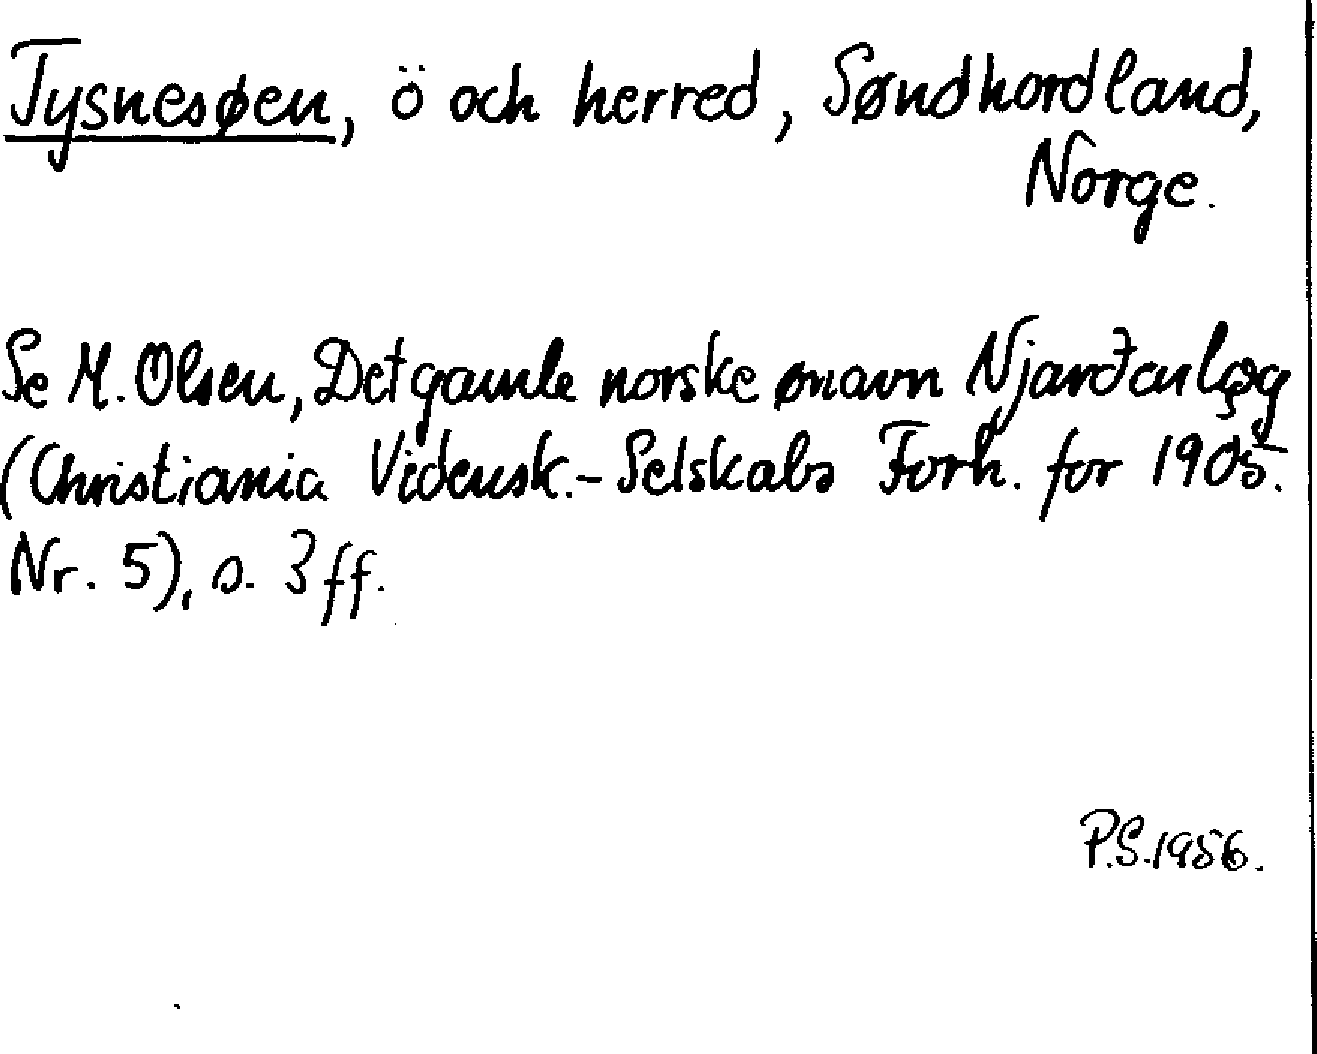 Tysnesøen, ö och herred, Søndhordland,
Norge.
Se M. Olsen, Det gamle norske ønavn Njarðarlǫg
(Christiania Vidensk.-Selskabs Forh. for 1905.
Nr. 5), s. 3 ff.
P.S. 1956.